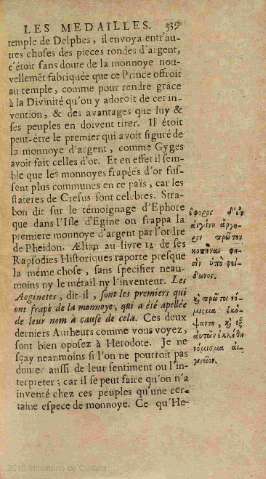 LES MEDAILLES. 939
temple de Delphes, il envoya entr'au-
tres choses des pieces rondes d'argent,
c'étoit sans doute de la monnoye nou-
vellemēt fabriquée que ce Prince offroit
au temple, comme pour rendre grace
à la Divinité qu'on y adoroit de cet in-
vention, & des avantages que luy &
ses peuples en doivent tirer. Il étoit
peut-être le premier qui avoit figuré de
la monnoye d'argent, comme Gyges
avoit fait celles d'or. Et en effet il sem-
ble que les monnoyes frapées d'or fus-
sent plus communes en ce païs, car les
stateres de Cresus sont celebres. Stra-
bon dit sur le témoignage d'Ephore
que dans l'Isle d'Egine on frappa la
premiere monnoye d'argent par l'ordre
de Pheidon. Ælian au livre 12 de ses
Rapsodies Historiques raporte presque
la même chose, sans specifier neau-
moins ny le métail ny l'inventeur. Les
Æginetes, dit-il, sont les premiers qui
ont frapé de la monnoye, qui a été apellée
de leur nom à cause de cela. Ces deux
derniers Autheurs comme vous voyez,
sont bien oposez à Herodote. Je ne
sçay neanmoins si l'on ne pourroit pas
donner aussi de leur sentiment ou l'in-
terpreter; car il se peut faire qu'on n'a
inventé chez ces peuples qu'une cer-
taine espece de monnoye. Ce qu'He-
ἔφορος
πρῶτον
πρῶτοι
νόμισμα
2010 Ministerio de Cultura